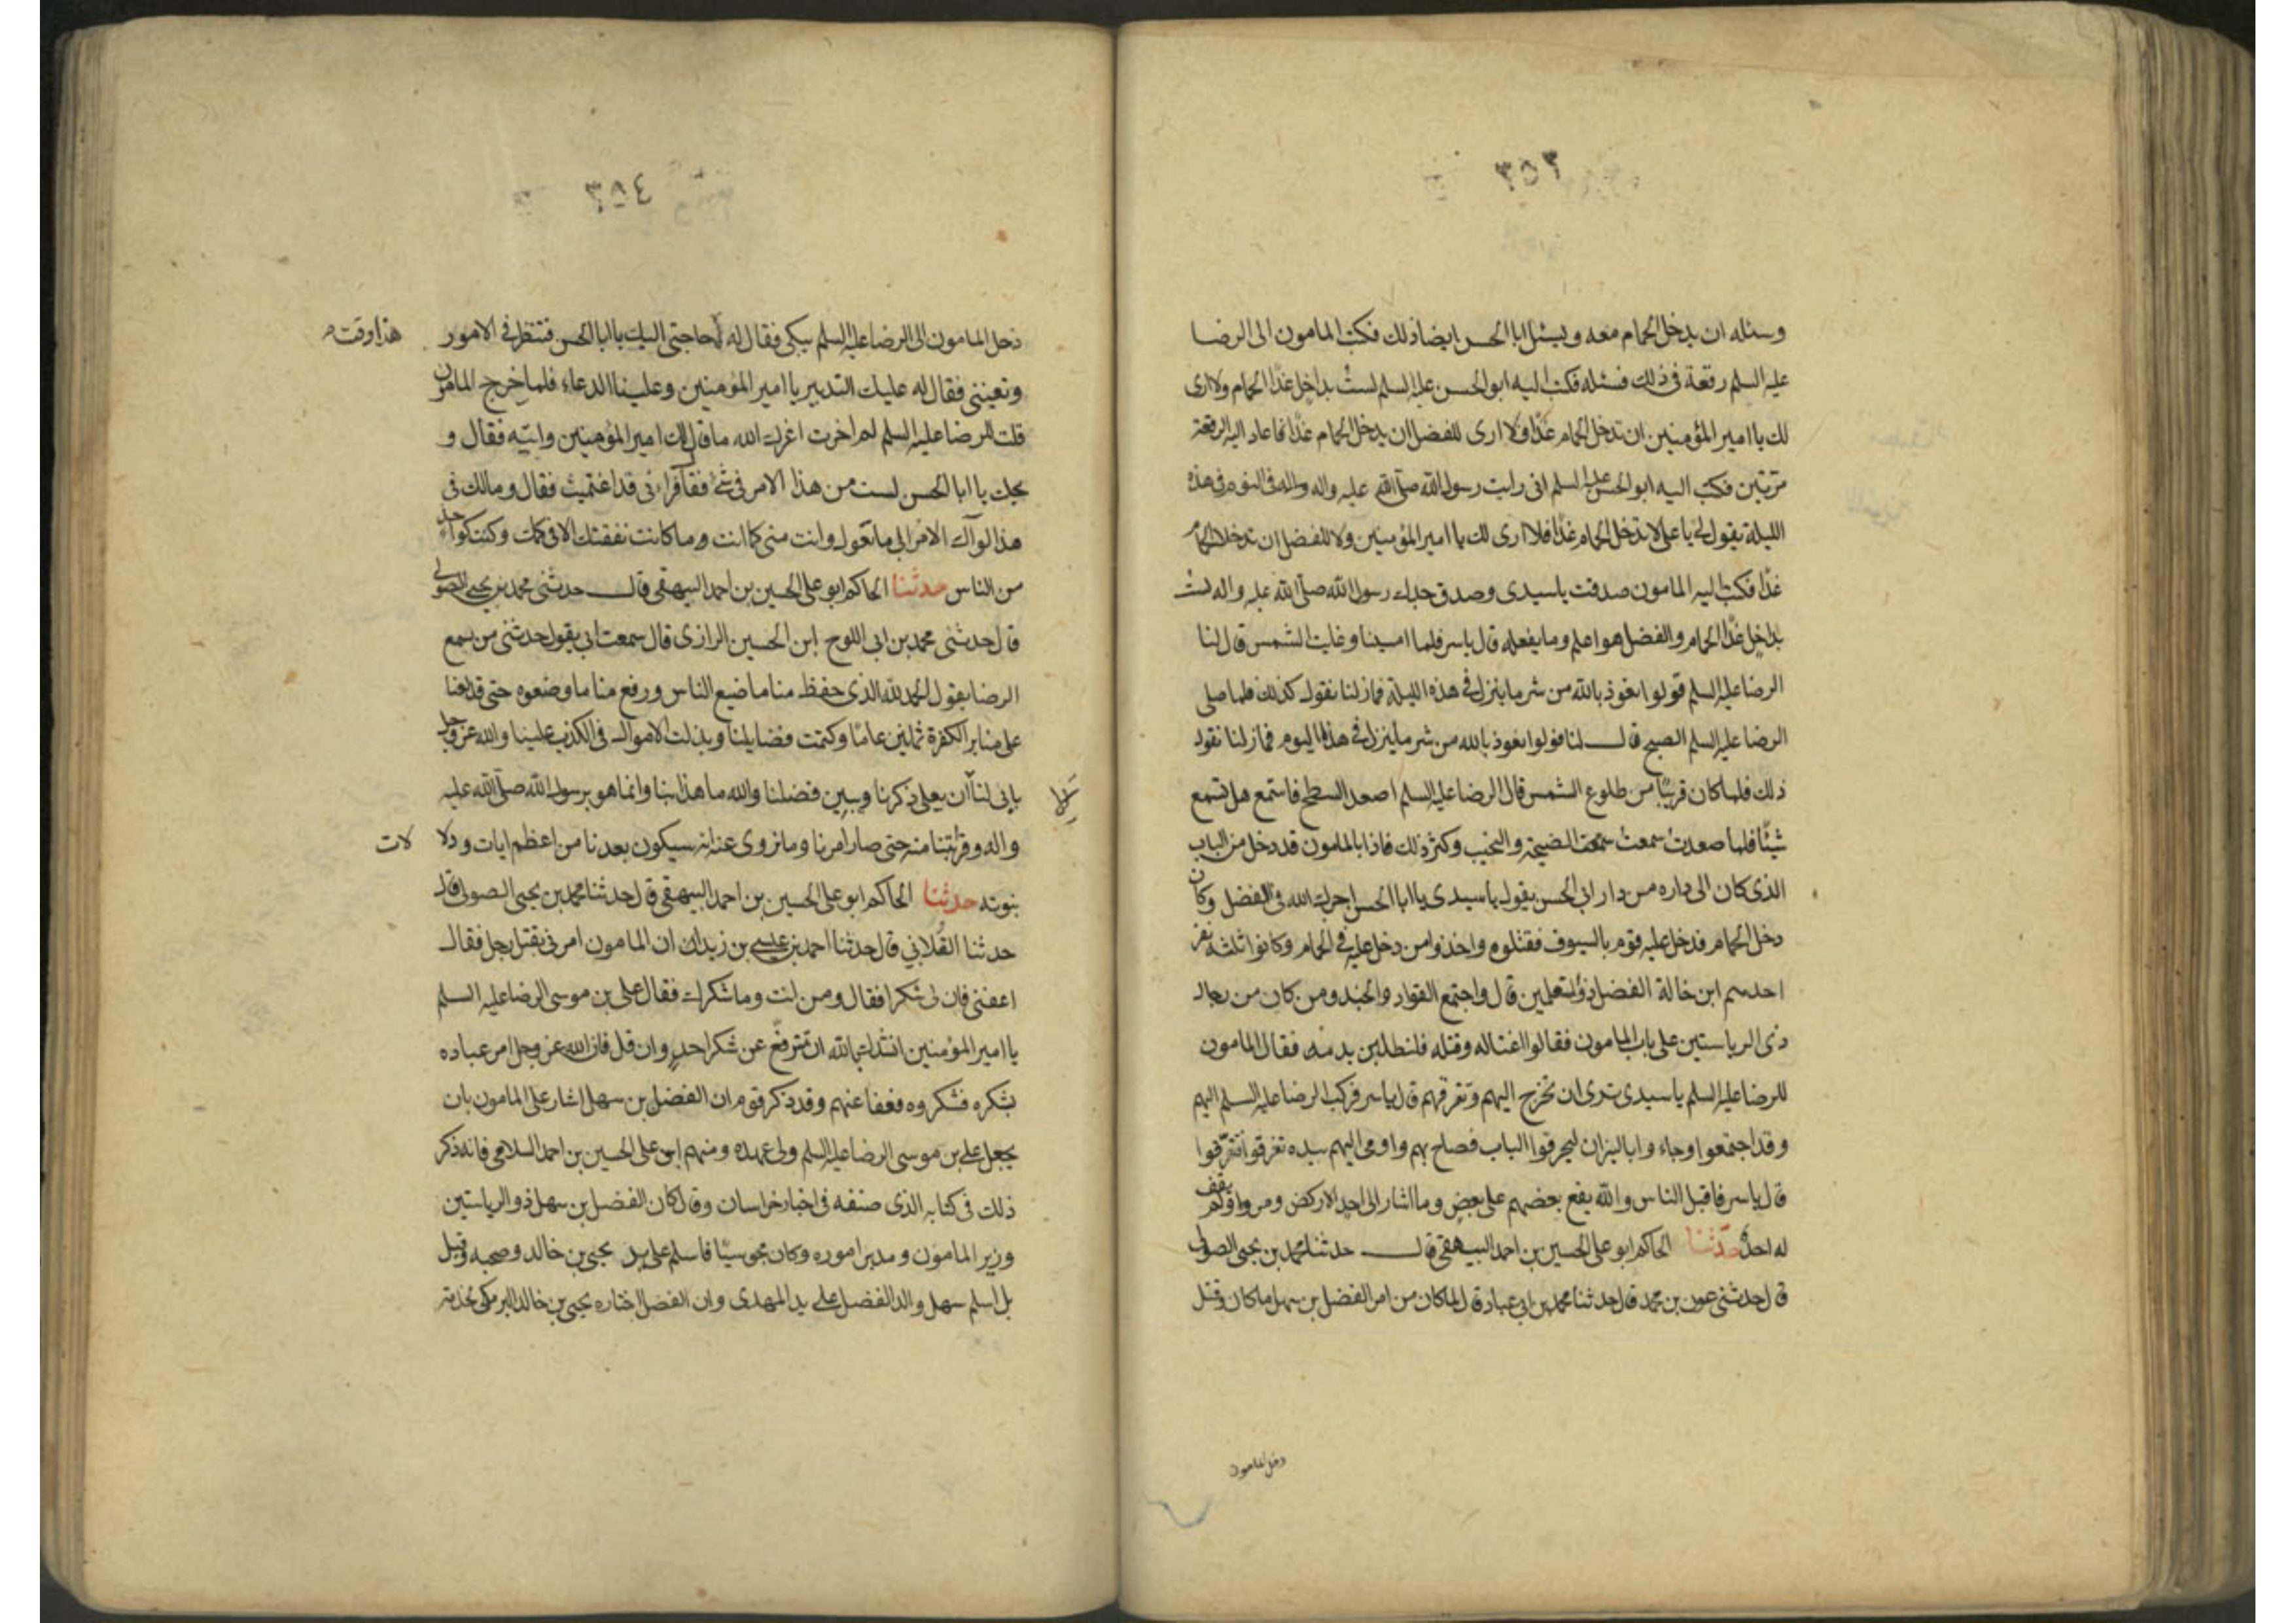 ٣٥٣
وسئله ان يدخل الحمام معه ويسئل ابا الحسن ايضا ذلك فكتب المامون الى الرضا
عليه السلم رقعة في ذلك فسئله فكتب اليه ابو الحسن عليه السلم لستُ بداخل غدًا الحمام ولا ارى
لك يا امير المؤمنين ان تدخل الحمام غدًا ولا ارى للفضل ان يدخل الحمام غدًا فاعاد اليه الرقعة
مرّتين فكتب اليه ابو الحسن عليه السلم انى رايت رسول الله صلّى الله عليه واله واله فى النوم فى هذه
الليلة يقول لى يا على لا تدخل الحمام غدًا فلا ارى لك يا امير المؤمنين ولا للفضل ان تدخلا الحمام
غدًا فكتب اليه المامون صدقت يا سيدى وصدق جدك رسول الله صلّى الله عليه واله لستُ
بداخلٍ غدًا الحمام والفضل هو اعلم وما يفعله قال ياسر فلما امسينا وغابت الشمس قال لنا
الرضا عليه السلم قولوا نعوذ بالله من شر ما ينزل فى هذه الليلة فمازلنا نقول كذلك فلما صلى
الرضا عليه السلم الصبح قال لنا قولوا نعوذ بالله من شر ما ينزل فى هذا اليوم فمازلنا نقول
ذلك فلما كان قريبًا من طلوع الشمس قال الرضا عليه السلم اصعد السطح فاستمع هل تسمع
شيئًا فلما صعدت سمعت سمعت الضيجة والنحيب وكثر ذلك فاذا بالمامون قد دخل من الباب
الذى كان الى داره من دار ابى الحسن يقول يا سيدى يا ابا الحسن اجرك الله فى الفضل وكان
دخل الحمام فدخل عليه قوم بالسيوف فقتلوه واخذوا من دخل عليه فى الحمام وكانوا ثلثه نفر
احدهم ابن خالة الفضل ذو القلمين قال واجتمع القواد والجند ومن كان من رجال
ذى الرياستين على باب المامون فقالوا اغتاله وقتله فلنطلبن بدمه فقال المامون
للرضا عليه السلم يا سيدى ترى ان تخرج اليهم وتفرقهم قال ياسر فركب الرضا عليه السلم اليهم
وقد اجتمعوا وجاءوا بالنيران ليحرقوا الباب فصاح بهم واومى اليهم بيده تفرقوا فتفرّقوا
قال ياسر فاقبل الناس والله يقع بعضهم على بعض وما اشار الى احدٍ الا ركض ومر ولم يقف
له احدٌ حدّثنا الحاكم ابو على الحسين بن احمد البيهقى قال حدثنا محمد بن يحيى الصولى
قال حدثنى عون بن محمد قال حدثنا محمد بن ابى عباد قال لما كان من امر الفضل بن سهل ما كان وقتل
دخل المامون
٣٥٤
دخل المامون الى الرضا عليه السلم يبكى فقال له حاجتى اليك يا ابا الحسن فتنظر فى الامور
هذا وقت
وتعيننى فقال له عليك التدبير يا امير المؤمنين وعلينا الدعاء فلما خرج المامون
قلت للرضا عليه السلم لم اخرت اعزك الله ما قال لك امير المؤمنين وابيته فقال و
يحك يا ابا الحسن لست من هذا الامر فى شئ فقال فراءنى قد اغتممت فقال ومالك فى
هذا لو آل الامر الى ما تقول وانت منى كما انت وما كانت نفقتك الا فى كمك وكنت كواحد
من الناس حدثنا الحاكم ابو على الحسين بن احمد البيهقى قال حدثنى محمد بن يحيى الصولى
قال حدثنى محمد بن ابى اللوج ابن الحسين الرازى قال سمعت ابى يقول حدثنى من سمع
الرضا يقول الحمد لله الذى حفظ منا ما ضيع الناس ورفع منا ما وضعوه حتى قد لعنا
على منابر الكفرة ثمانين عامًا وكتمت فضايلنا وبذلت الاموال فى الكذب علينا والله عز وجل
يابى لنا الّا ان يعلى ذكرنا ويبين فضلنا والله ما هذا بنا وانما هو برسول الله صلّى الله عليه
واله وقرابتنا منه حتى صار امرنا وما نروى عنه انه سيكون بعدنا من اعظم ايات ودلا
لات
نبوته حدثنا الحاكم ابو على الحسين بن احمد البيهقى قال حدثنا محمد بن يحيى الصولى قال
حدثنا القلابي قال حدثنا احمد بن عيسى بن زيد ان المامون امرنى بقتل رجل فقال
اعفنى فان لى شكرا فقال ومن انت وما شكرك فقال على بن موسى الرضا عليه السلم
يا امير المؤمنين انشدك الله ان تترفّع عن شكر احدٍ وان قل فان الله عز وجل امر عباده
بشكره فشكروه فعفا عنهم وقد ذكر قوم ان الفضل بن سهل اشار على المامون بان
يجعل على بن موسى الرضا عليه السلم ولى عهده ومنهم ابو على الحسين بن احمد السلامى فانه ذكر
ذلك فى كتابه الذى صنفه فى اخبار خراسان وقال كان الفضل بن سهل ذو الرياستين
وزير المامون ومدبر اموره وكان مجوسيًا فاسلم على يد يحيى بن خالد وصحبه وقيل
بل اسلم سهل والد الفضل على يد المهدى وان الفضل اختاره يحيى بن خالد البرمكى لخدمته